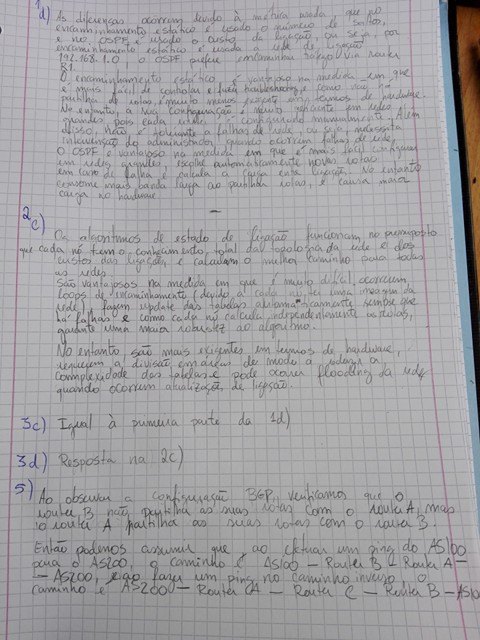 1d) As diferenças ocorrem devido à métrica usada, que no
encaminhamento estático é usado o número de saltos,
e no OSPF é usado o custo da ligação, ou seja, por
encaminhamento estático é usada a rede de ligação
192.168.1.0, o OSPF prefere encaminhar tráfego via router
R1.
O encaminhamento estático é vantajoso na medida em que
é mais fácil de controlar e fazer troubleshooting e como não há
partilha de rotas, é muito menos exigente em termos de hardware.
No entanto, a sua configuração é muito exigente em redes
grandes pois cada rede é configurada manualmente. Além
disso, não é tolerante a falhas de rede, ou seja, necessita
intervenção do administrador, quando ocorrem falhas de rede.
O OSPF é vantajoso na medida em que é mais fácil configurar
em redes grandes, escolhe automaticamente novas rotas
em caso de falha e calcula a carga entre ligações. No entanto
consome mais banda larga ao partilhar rotas, e causa maior
carga no hardware.
2c)
Os algoritmos de estado de ligação funcionam no pressuposto
que cada nó tem o conhecimento total das topologia da rede e dos
custos das ligações, e calculam o melhor caminho para todas
as redes.
São vantajosos na medida em que é muito difícil ocorrerem
loops de encaminhamento (devido a cada nó ter uma imagem da
rede), fazem update das tabelas automaticamente sempre que
há falhas e como cada nó calcula independentemente as rotas,
garante uma maior robustez ao algoritmo.
No entanto são mais exigentes em termos de hardware,
requerem a divisão em áreas de modo a reduzir a
complexidade das tabelas e pode ocorrer flooding da rede
quando ocorrem atualizações de ligação.
3c) Igual à primeira parte da 1d)
3d) Resposta na 2c)
5)
Ao observar a configuração BGP, verificamos que o
router B não partilha as suas rotas com o router A, mas
o router A partilha as suas rotas com o router B.
Então podemos assumir que, ao efetuar um ping do AS100
para o AS200, o caminho é AS100 — Router B — Router A —
— AS200, e ao fazer um ping no caminho inverso o
caminho é AS200 — Router A — Router C — Router B — AS100